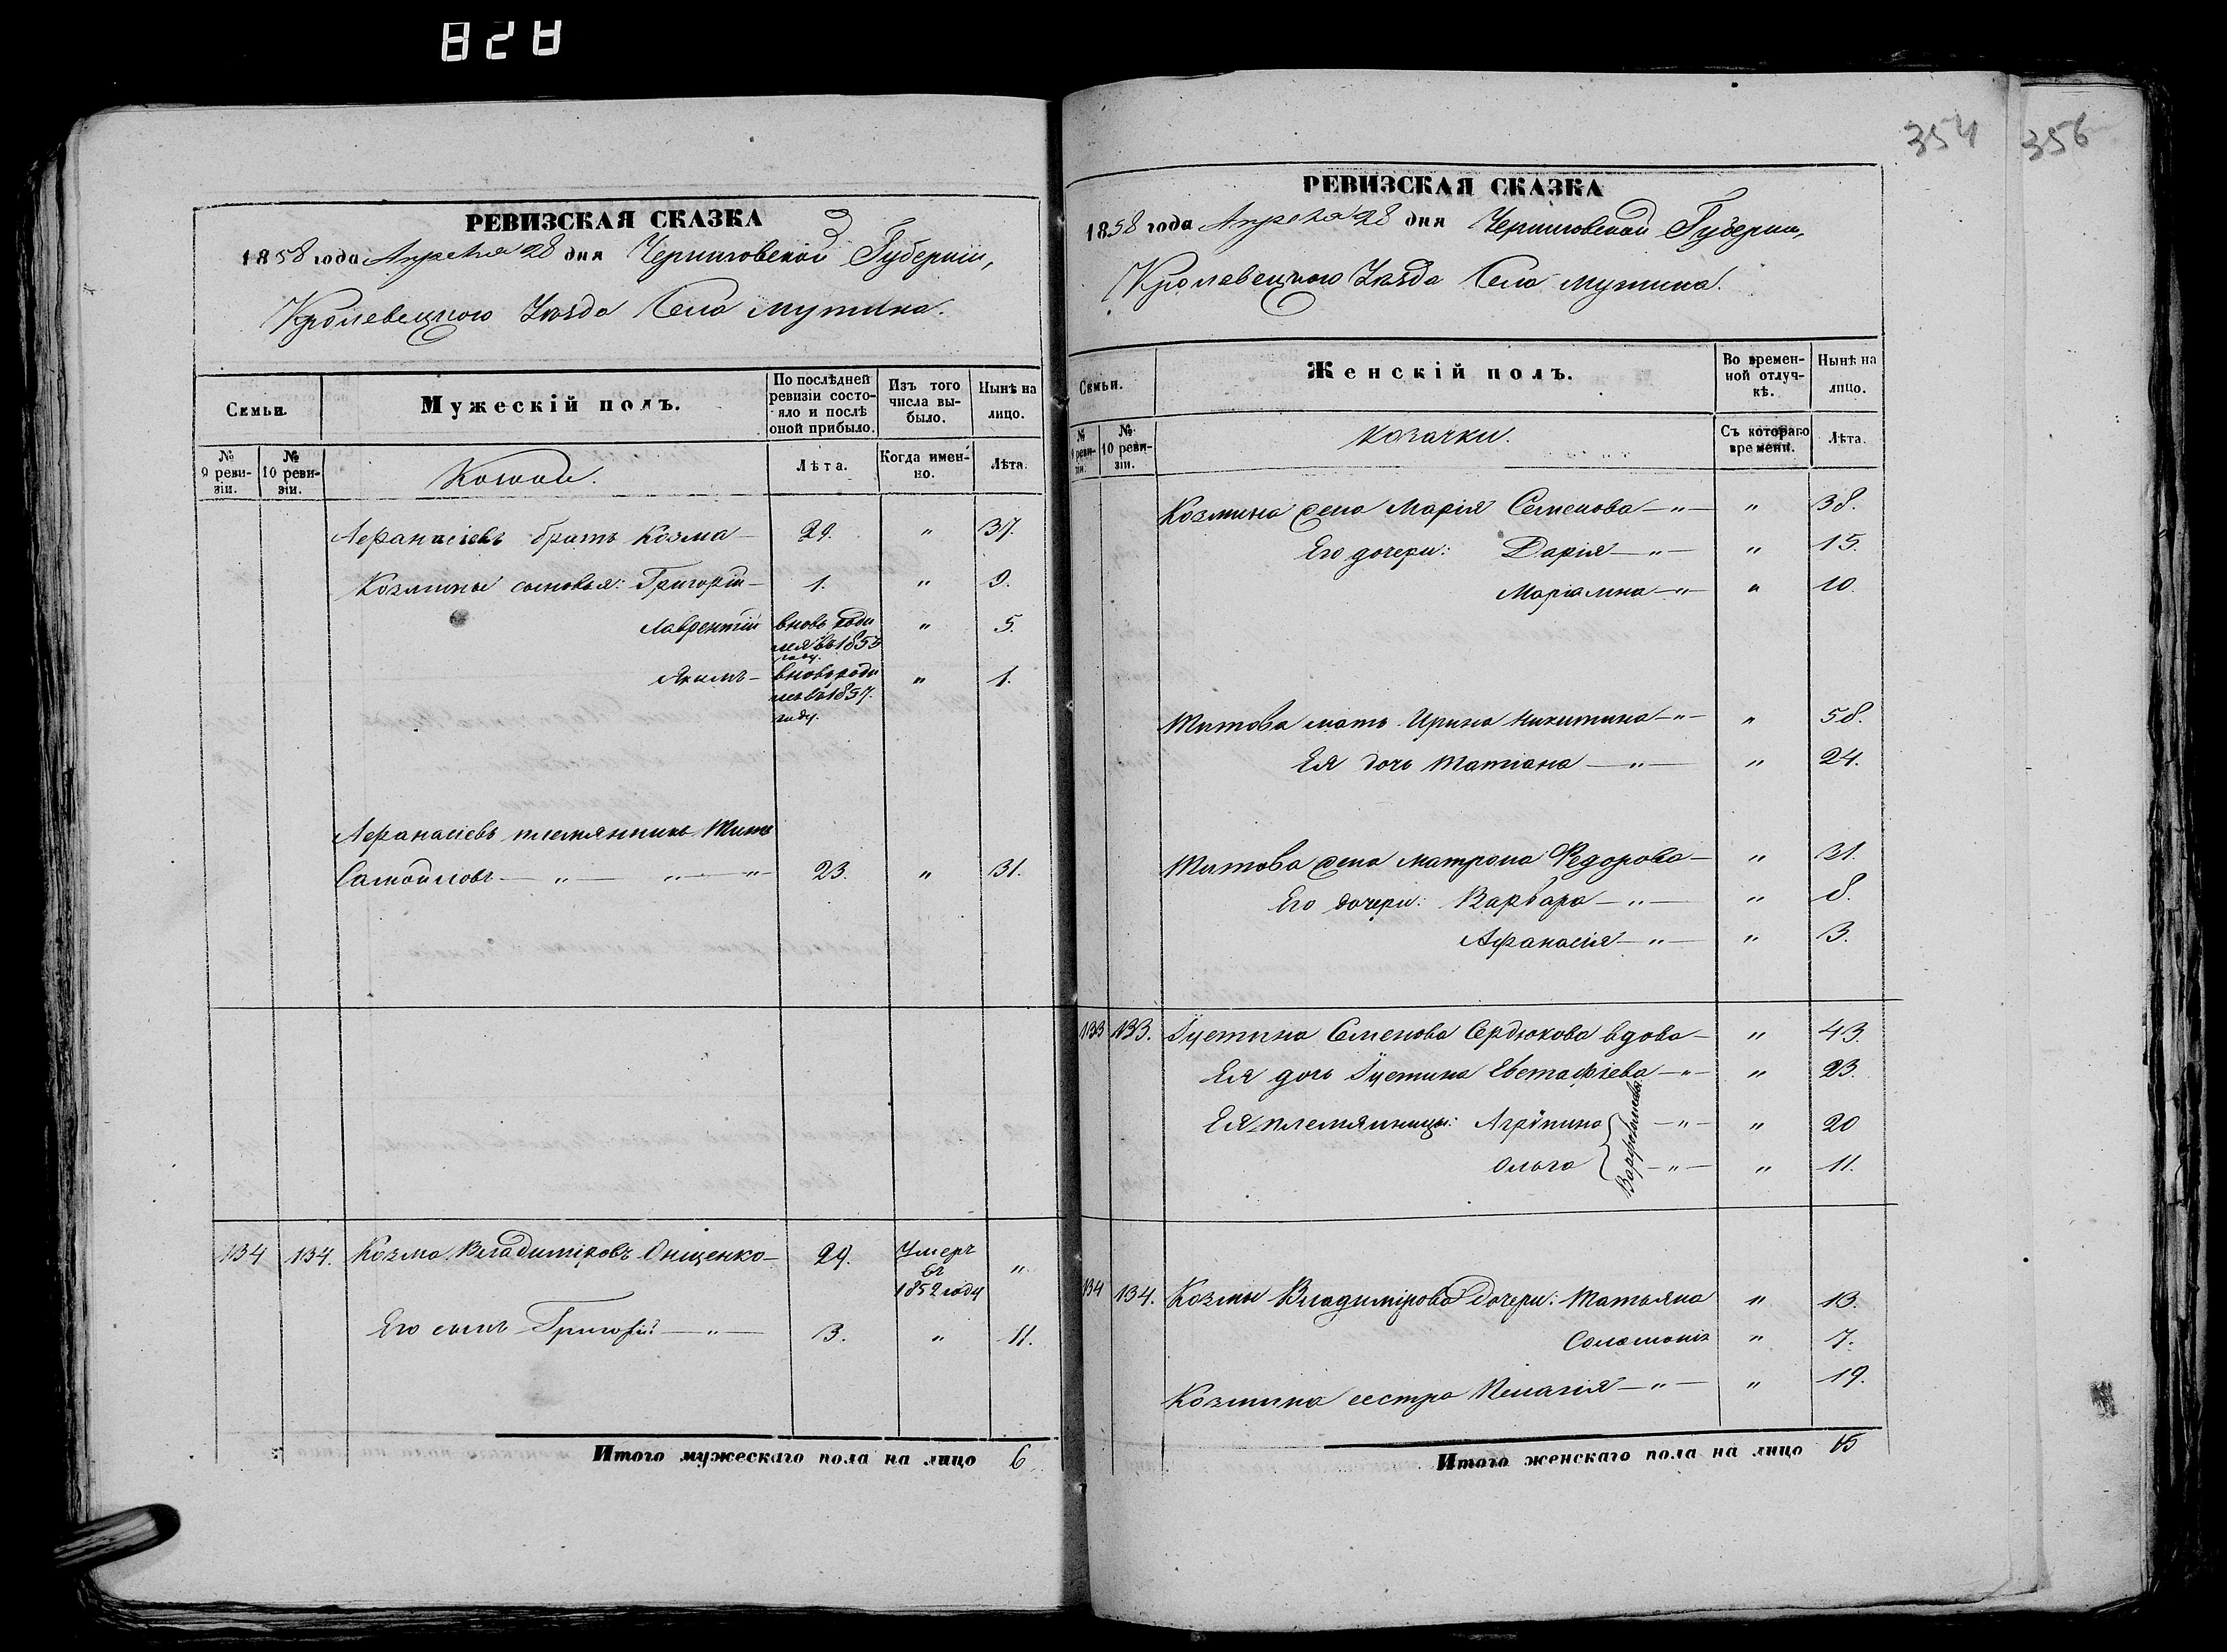 828
354
356
РЕВИЗСКАЯ СКАЗКА
1858 года Апреля 28 дня Черниговской Губерніи,
Кролевецкого Уѣзда Села Мутина.
Семьи.
Мужескій полъ.
По послѣдней ревизіи состояло и послѣ оной прибыло.
Изъ того числа выбыло.
Нынѣ на лицо.
№ 9 ревизіи.
№ 10 ревизіи.
Козаки.
Лѣта.
Когда именно.
Лѣта.
Афанасіевъ братъ Козма — 29. " 37.
Козмины сыновья: Григорій — 1. " 9.
Лаврентій вновь роди " 5.
лся въ 1853
году.
Якимъ — вновь роди " 1.
лся въ 1857.
году.
Афанасіевъ племянникъ Титъ
Самойловъ — " — " — " — 23. " 31.
134 134. Козма Владиміровъ Онищенко — 29. Умеръ "
въ
1852 году
Его сынъ Григорій — " — 3. " 11.
Итого мужескаго пола на лицо 6
РЕВИЗСКАЯ СКАЗКА
1858 года Апреля 28 дня Черниговской Губерніи,
Кролевецкого Уѣзда Села Мутина.
Семьи.
Женскій полъ.
Во временной отлучкѣ.
Нынѣ на лицо.
№ 9 ревизіи.
№ 10 ревизіи.
Козачки.
Съ котораго времени.
Лѣта.
Козмина жена Марія Семенова — " — " 38.
Его дочери: Дарія — " — " 15.
Маріамна — " — " 10.
Титова мать Ирина Никитина — " — " 58.
Ея дочь Татіана — " — " 24.
Титова жена Матрона Федорова — " 31.
Его дочери: Варвара — " — " 8.
Афанасія — " — " 3.
133 133. Іустина Семенова Сердюкова вдова — " 43.
Ея дочь Іустина Евстафіева — " — " 23.
Ея племянницы: Агрипина — " — " 20
Ольга — " — " 11.
134 134. Козмы Владимірова дочери: Татьяна " 13.
Соломонія " 7.
Козмина сестра Пелагія — " — " 19.
Итого женскаго пола на лицо 15